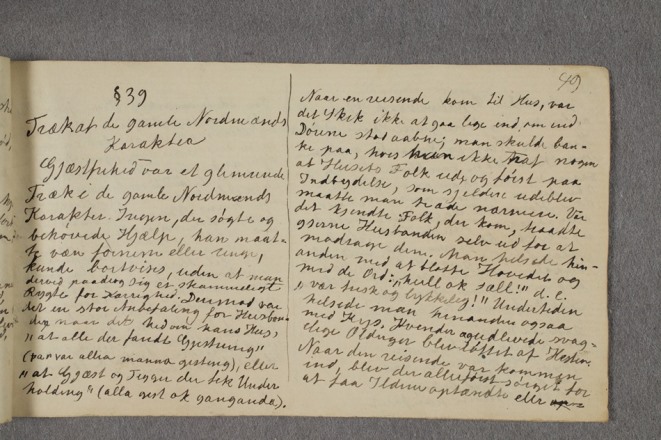 §39
Træk af de gamle Nordmænds
Karakter
Gjæstfrihed var et glimrende
Træk i de gamle Nordmænds
Karakter. Ingen, der søgte og
behøvede Hjælp, han maat-
te være fornem eller ringe,
kunde bortvises, uden at man
derved paadrog sig et skammeligt
Rygte for Karrighed. Derimod var
det en stor Anbefaling for Husbon-
den naar det hed om hans Hus,
"at alle der fandt Gjestning"
(var var allra manna gesting), eller
"at Gjæst og Tigger der fik Under
holdning" (alla gest ok ganganda).
49
Naar en reisende kom til Hus, var
det Skik ikke at gaa lige ind, om end
Dörene stod aabne; man skulde ban-
ke paa, hvis ikke traf nogen
af Husets Folk ude, og först paa
Indbydelse, som sjelden udeblev
maatte man træde nærmere. Var
det kjendte Folk, der kom, traadte
gjerne Husbonden selv ud for at
modtage dem. Man hilsede hin-
anden med at blotte Hovedet og
med de Ord: "heill ok sæll!" d. e.
"var frisk og lykkelig!" Undertiden
hilsede man hinanden ogsaa
med Kys. Kvinder og svag-
elige Oldinger blev löftet af Hesten.
Naar den reisende var kommen
ind, blev der allerförst sörget for
at faa Ilden optændt eller